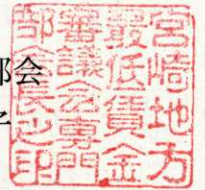 部会
宮崎地方
最低賃金
審議会専門
部会長之印